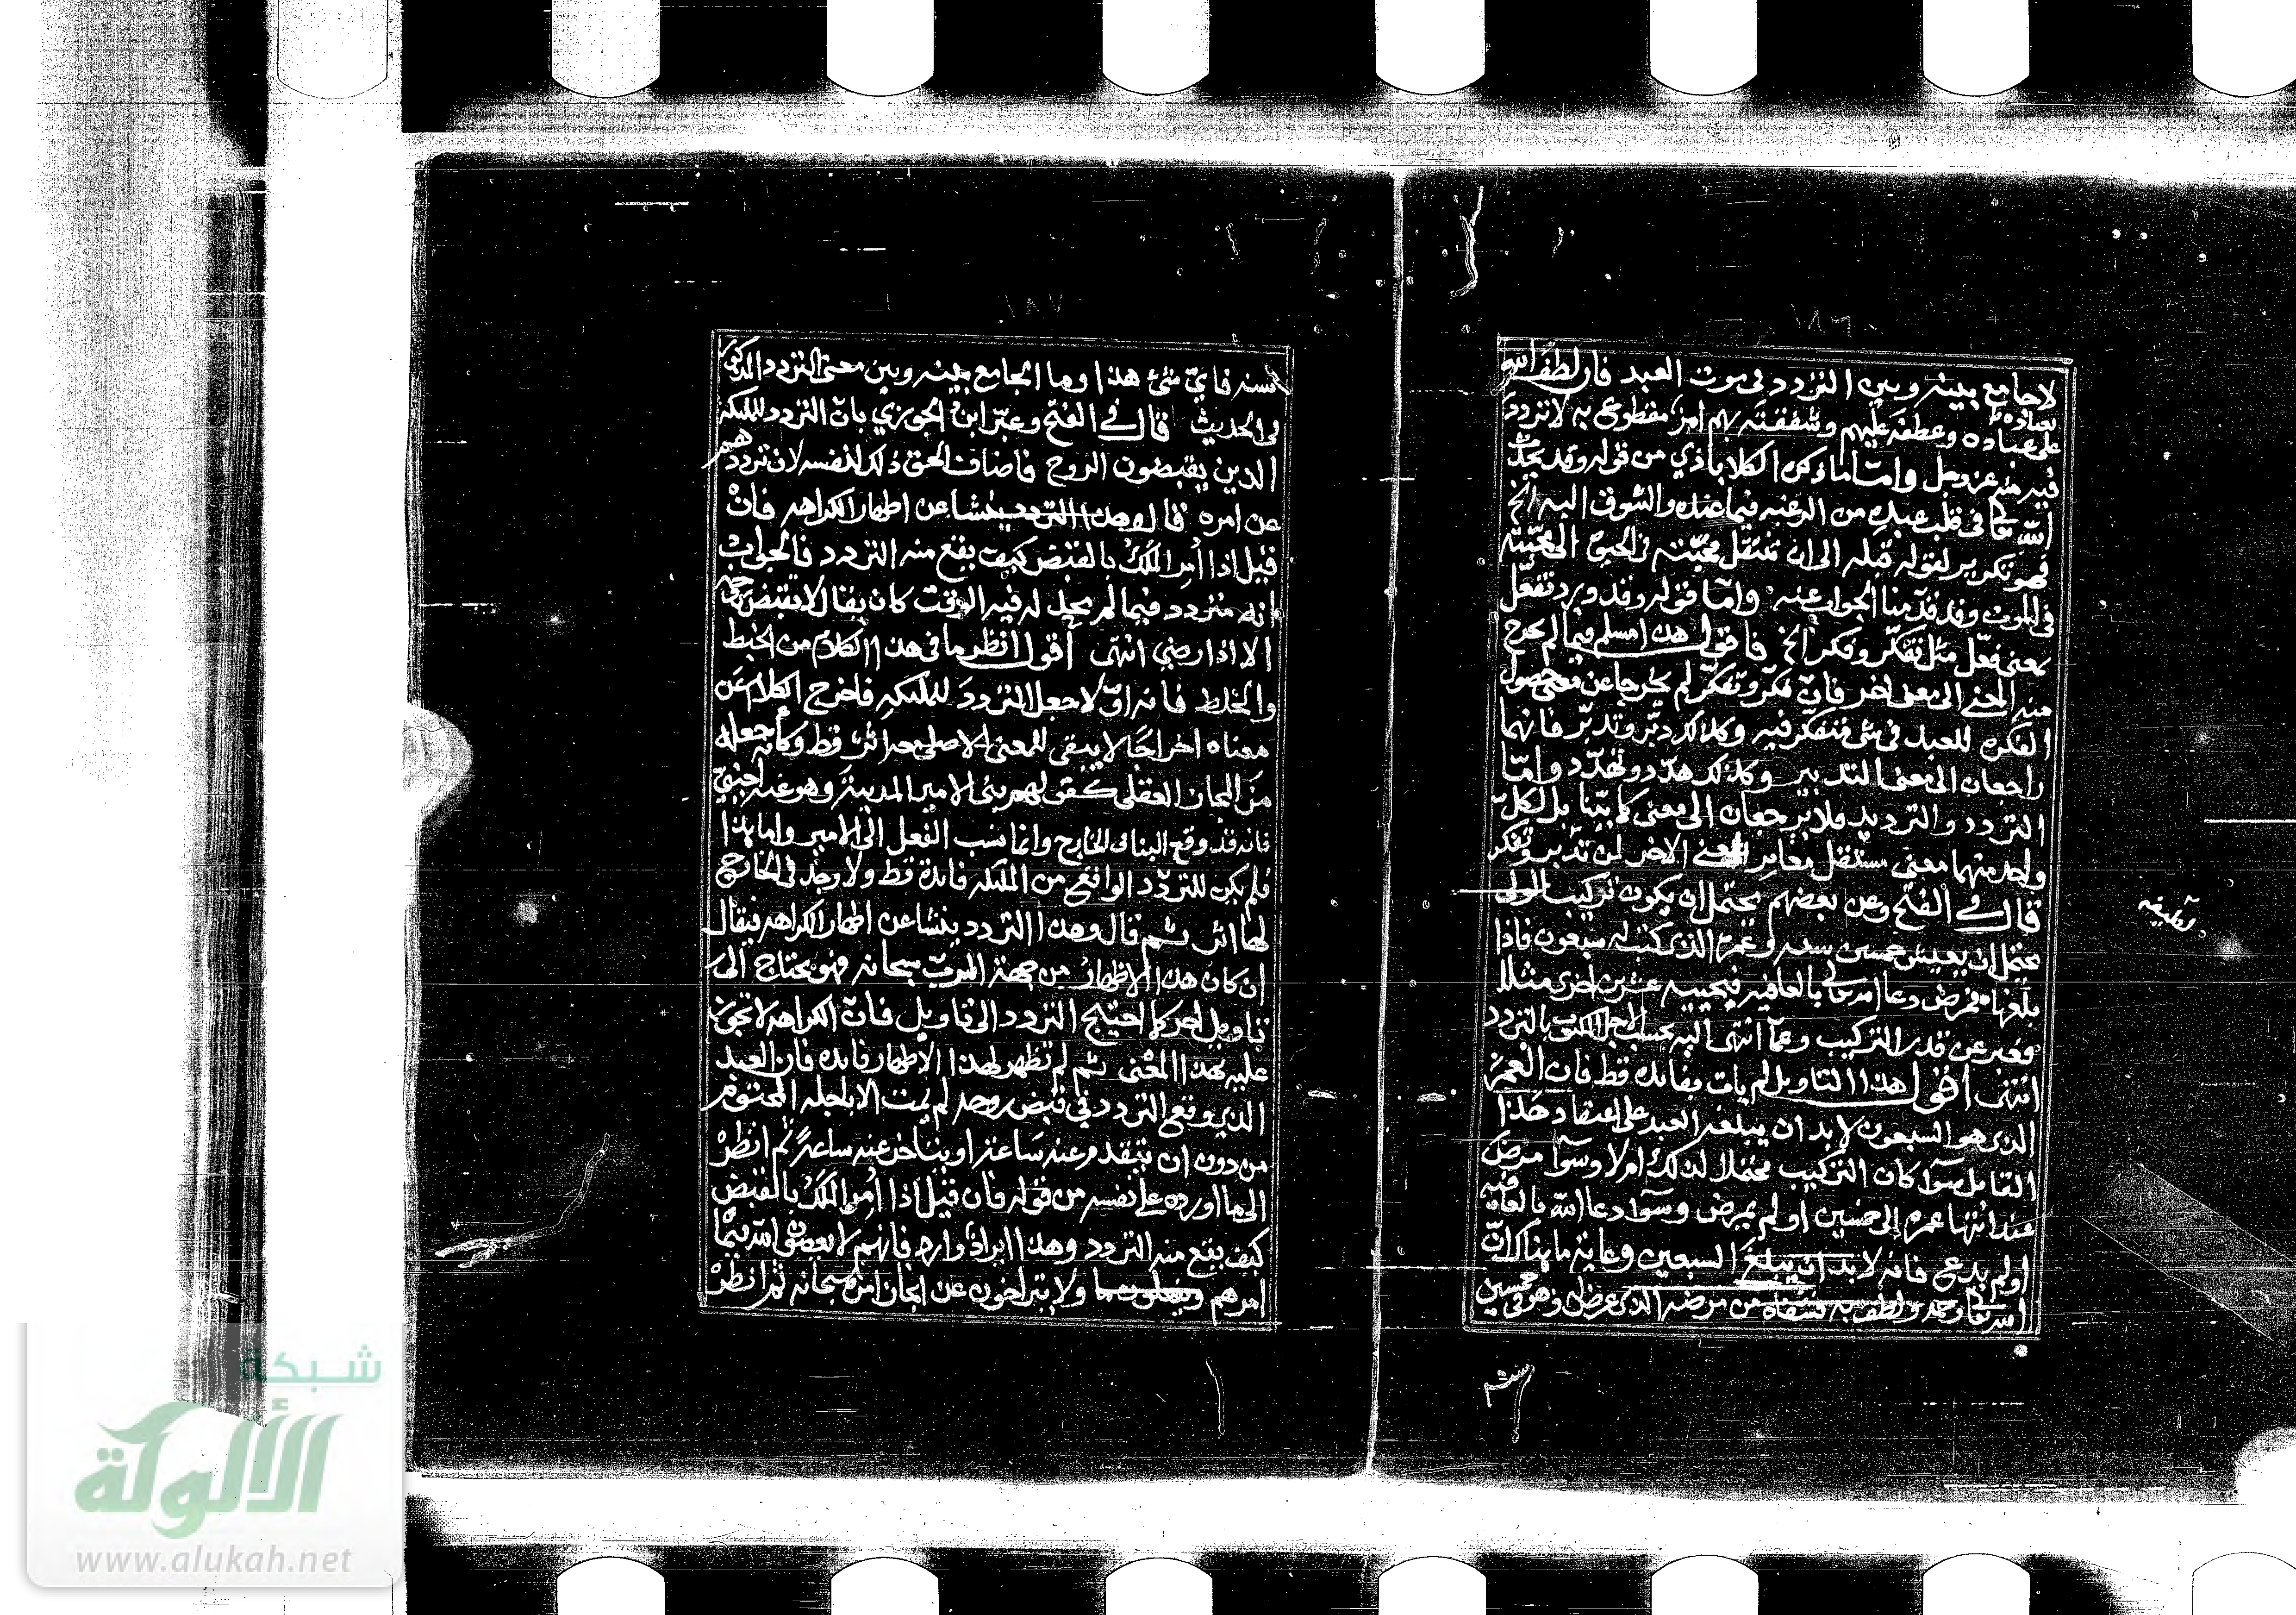 ١٨٦
لا جامع بينه وبين التردد في موت العبد فان لطف الله
بعباده
على عباده وعطفه عليهم وشفقته بهم امر مقطوع به لا تردد
فيه منه عز وجل واما ما ذكره الكلاباذي من قوله وقد يحدث
الله تعالى في قلب عبده من الرغبة فيما عنده والشوق اليه الخ
فهو تكرير لقوله قبله الى ان تنتقل محبته في الحيوة الى محبته
في الموت وقد قدمنا الجواب عنه واما قوله وقد ورد تفعّل
بمعنى فعّل مثل تفكر وفكر الخ فاقول هذا مسلم فيما لم يخرج
منه المعنى الى معنى اخر فانّ فكّر وتفكّر لم يخرجا عن معنى حصول
الفكرة للعبد في شي فتفكر فيه وكذلك دبّر وتدبّر فانهما
راجعان الى معنى التدبير وكذلك هدّد وتهدّد وامّا
التردد والترديد فلا يرجعان الى معنى كما بيّنا بل لكل
واحد منهما معنى مستقل مغاير للمعنى الاخر لمن تدبر وتفكر
قال في الفتح وعن بعضهم يحتمل ان يكون تركيب الولي
يحتمل ان يعيش خمسين سنه وعمره الذي كتب له سبعون فاذا
بلغها فمرض دعا الله تعالى بالعافيه فيحييه عشرين اخرى مثلا
فعبر عن قدر التركيب وعما انتهى اليه بحسب الاجل المكتوب بالتردد
انتهى اقول هذا التاويل لم يات بفائده قط فان العمر
الذي هو السبعون لا بد ان يبلغه العبد على اعتقاد هذا
القايل سوآ كان التركيب محتملا لذلك ام لا وسوآ مرض
عند انتهآ عمره الى خمسين او لم يمرض وسوآ دعا الله بالعافيه
او لم يدع فانه لا بد ان يبلغ السبعين وغاية ما هناك انّ
الله تعالى رحمه ولطف به بشفاه من مرضه الذي عرض له وهو في خمسين
سنه
لطيفه
١٨٧
سنه فايّ شئ هذا وما الجامع بينه وبين معنى التردد المذكور
في الحديث قال في الفتح وعبّر ابن الجوزي بانّ التردد للملئكه
الذين يقبضون الروح فاضاف الحق ذلك لنفسه لان ترددهم
عن امره قال وهذا التردد ينشا عن اظهار الكراهه فانْ
قيل اذا اُمر الملَك بالقبض كيف يقع منه التردد فالجواب
انه متردد فيما لم يحد له فيه الوقت كان يقال لا تقبض روحه
الا اذا رضي انتهى اقول انظر ما في هذا الكلام من الخبط
والخلط فانه اوّلا جعل التردد للملئكه فاخرج الكلام عن
معناه اخراجًا لا يبقى للمعنى الاصلي معه اثر قط وكانّه جعله
من المجاز العقلي كقولهم بنى الامير المدينة وهو عنه اجنبيّ
فانه قد وقع البنا في الخارج وانما نسب الفعل الى الامير واما هذا
فلم يكن للتردّد الواقع من الملئكه فايدة قط ولا وجد في الخارج
لها اثر ثم قال وهذا التردد ينشا عن اظهار الكراهه فيقال
ان كان هذا الاظهار من جهة الربّ سبحانه فهو يحتاج الى
تاويل اخر كما احتيج التردد الى تاويل فانّ الكراهه لا تجوز
عليه بهذا المعنى ثم لم تظهر لهذا الاظهار فايده فان العبد
الذي وقع التردد في قبض روحه لم يمت الا باجله المحتوم
من دون ان يتقدم عنه ساعة او يتاخر عنه ساعةً ثم انظرْ
الى ما اورده على نفسه من قوله فان قيل اذا اُمر الملَكُ بالقبض
كيف يقع منه التردد وهذا ايرادٌ وارد فانهم لا يعصون الله فيما
امرهم ولا يتراخون عن انجاز امره سبحانه ثم انظرْ